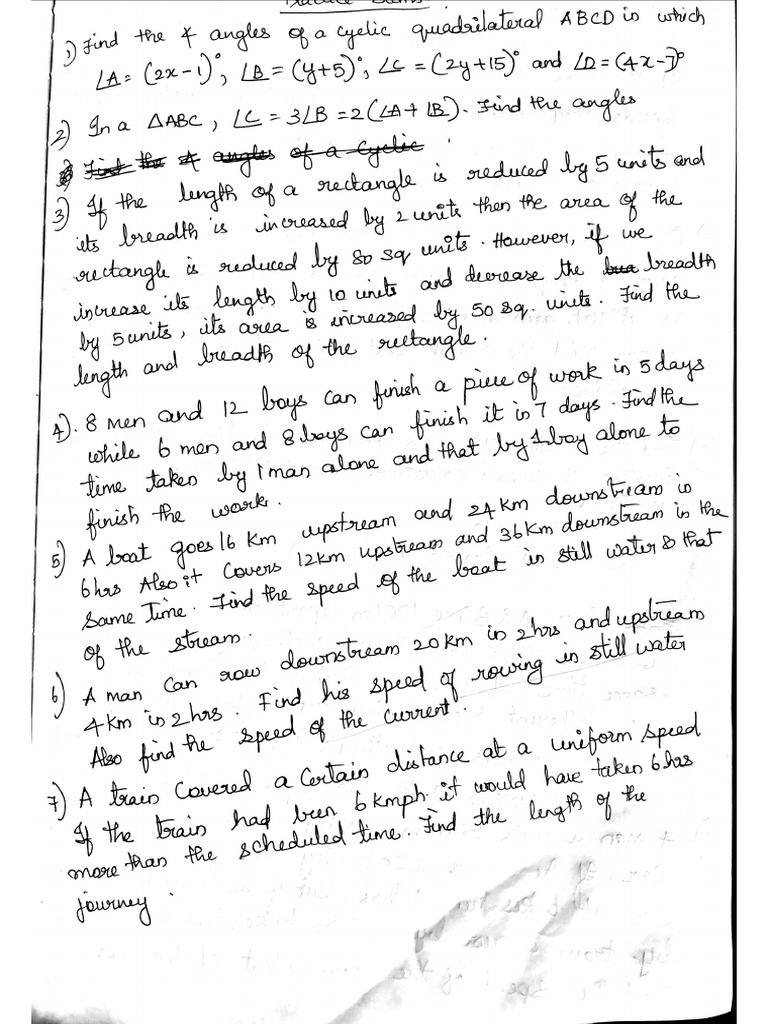 Practice Sums
1) Find the 4 angles of a cyclic quadrilateral ABCD in which
∠A = (2x-1)°, ∠B = (y+5)°, ∠C = (2y+15)° and ∠D = (4x-7)°
2) In a ΔABC, ∠C = 3∠B = 2(∠A + ∠B). Find the angles
Find the 4 angles of a cyclic
3) If the length of a rectangle is reduced by 5 units and
its breadth is increased by 2 units then the area of the
rectangle is reduced by 80 sq units. However, if we
increase its length by 10 units and decrease the breadth
by 5 units, its area is increased by 50 sq. units. Find the
length and breadth of the rectangle.
4). 8 men and 12 boys can finish a piece of work in 5 days
while 6 men and 8 boys can finish it in 7 days. Find the
time taken by 1 man alone and that by 1 boy alone to
finish the work.
5) A boat goes 16 km upstream and 24 km downstream in
6 hrs Also it covers 12 km upstream and 36 km downstream in the
same time. Find the speed of the boat in still water & that
of the stream.
6) A man can row downstream 20 km in 2 hrs and upstream
4 km in 2 hrs. Find his speed of rowing in still water
Also find the speed of the current.
7) A train covered a certain distance at a uniform speed
If the train had been 6 kmph it would have taken 6 hrs
more than the scheduled time. Find the length of the
journey.